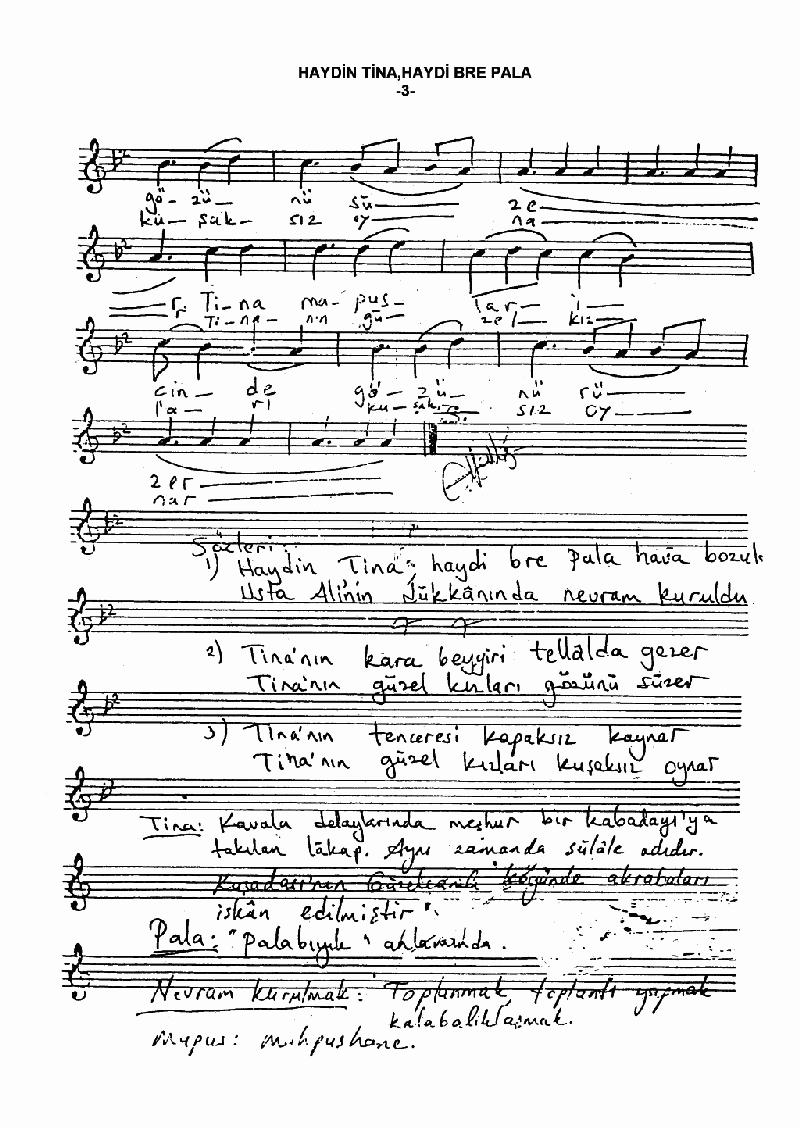 HAYDİN TİNA,HAYDİ BRE PALA
-3-
gö- zü- nü sü 2e
ku- şak- sız oy na
r. Ti- na ma- pus- lar- i-
Ti- na- nın gü- zel- kız-
cin- de gö- zü- nü rü
la- rı ku- şak- sız oy
zer
nar
Sözleri:
1) Haydin Tina, haydi bre Pala hava bozuk
Usta Ali'nin dükkânında nevram kuruldu
2) Tina'nın kara beygiri tellâlda gezer
Tina'nın güzel kızları gözünü süzer
3) Tina'nın tenceresi kapaksız kaynar
Tina'nın güzel kızları kuşaksız oynar
Tina: Kavala dolaylarında meşhur bir kabadayı'ya
takılan lâkap. Aynı zamanda sülâle adıdır.
Kuşadası'nın Güzelçamlı köyünde akrabaları
iskân edilmiştir".
Pala: "Palabıyık" anlamında.
Nevram kurulmak: Toplanmak, toplantı yapmak
kalabalıklaşmak.
Mapus: mahpushane.